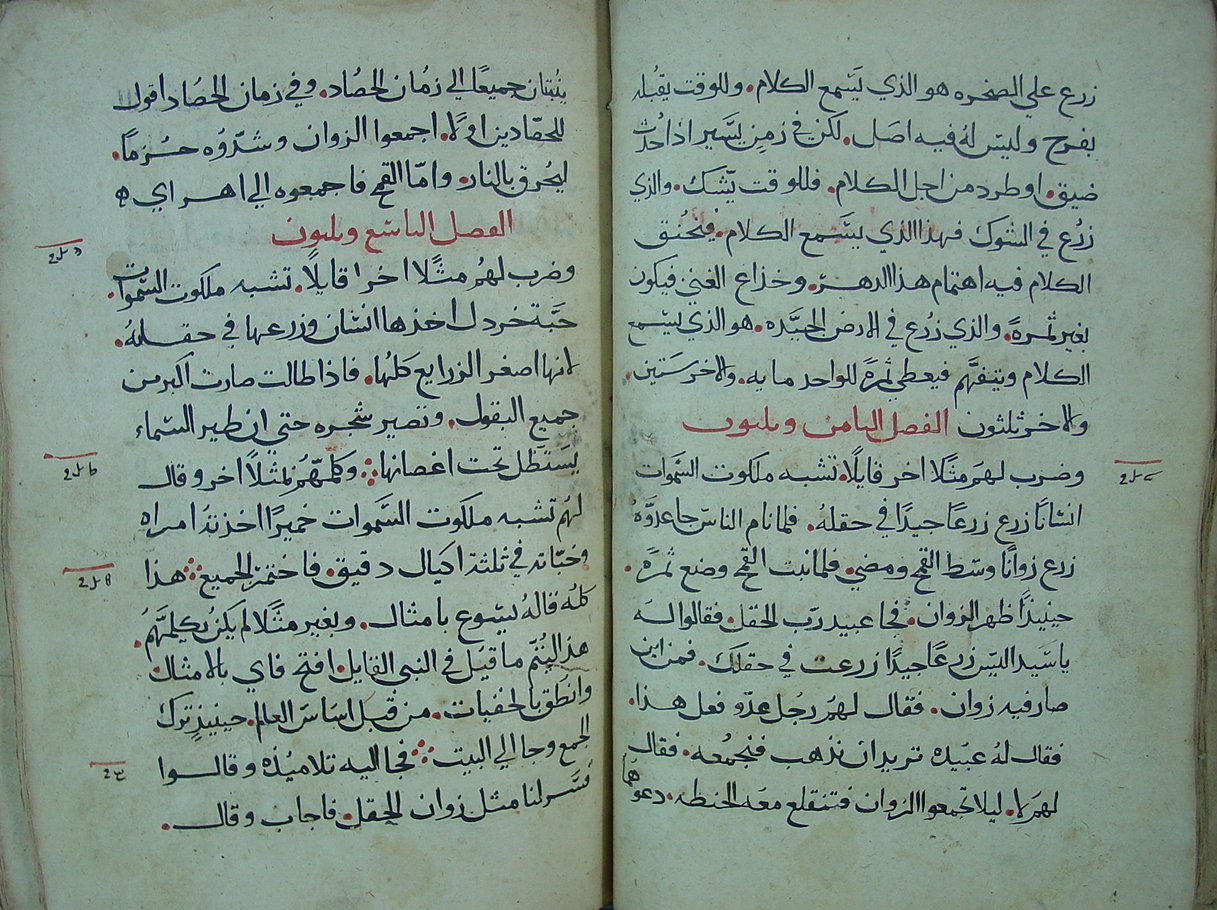 زرع علي الصخره هو الذي يسمع الكلام. وللوقت يقبله
بفرح وليس له فيه اصل. لكن في زمن يسير اذا حدث
ضيق. او طرد من اجل الكلام. فللوقت يشك. والذي
زرع في الشوك فهذا الذي يسمع الكلام. فيخنق
الكلام فيه اهتمام هذا الدهر. وخداع الغني فيكون
بغير ثمرة. والذي زرع في الارض الجيده. هو الذي يسمع
الكلام ويتفهم فيعطي ثمرة للواحد مايه. والاخر ستين.
والاخر ثلثون الفصل الثامن وثلثون
وضرب لهم مثلا اخر قايلا. تشبه ملكوت السموات
انسانا زرع زرعا جيدا في حقله. فلما نام الناس جا عدوه
زرع زوانا وسط القمح ومضي. فلما نبت القمح وضع ثمرة.
حينيذا ظهر الزوان. فجا عبيد رب الحقل. فقالوا له
يا سيد اليس زرعا جيدا زرعت في حقلك. فمن اين
صار فيه زوان. فقال لهم رجل عدو فعل هذا.
فقال له عبيده تريد ان نذهب فنجمعه. فقال
لهم لا. ليلا تجمعوا الزوان فتنقلع معه الحنطه. دعوهما
ينبتان جميعا الي زمان الحصاد. وفي زمان الحصاد اقول
للحصادين اولا. اجمعوا الزوان وشدوه حزما.
ليحرق بالنار. واما القمح فاجمعوه الي اهراي
الفصل التاسع وثلثون
وضرب لهم مثلا اخرا قايلا. تشبه ملكوت السموات.
حبة خردل اخذها انسان وزرعها في حقله.
لانها اصغر الزرايع كلها. فاذا طالت صارت اكبر من
جميع البقول. وتصير شجره حتي ان طير السماء
يستظل تحت اغصانها وكلمهم مثلا اخر وقال
لهم تشبه ملكوت السموات خميرا اخذته امراه
وخباته في ثلثة اكيال دقيق. فاختمر الجميع هذا
كله قاله يسوع بامثال. وبغير مثلا لم يكن يكلمهم.
هذا ليتم ما قيل في النبي القايل. افتح فاي بالامثال
وانطق بالخفيات. من قبل اساس العالم. حينيذ ترك
الجمع وجا الي البيت فجا اليه تلاميذه وقالوا
فسر لنا مثل زوان الحقل. فاجاب وقال.